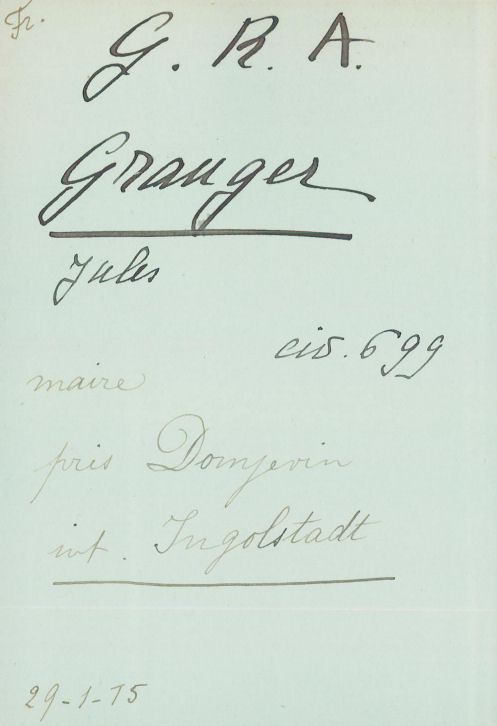 Fr.
G. R. A.
Granger
Jules
civ. 699
maire
pris Domjevin
int. Ingolstadt
29-1-15